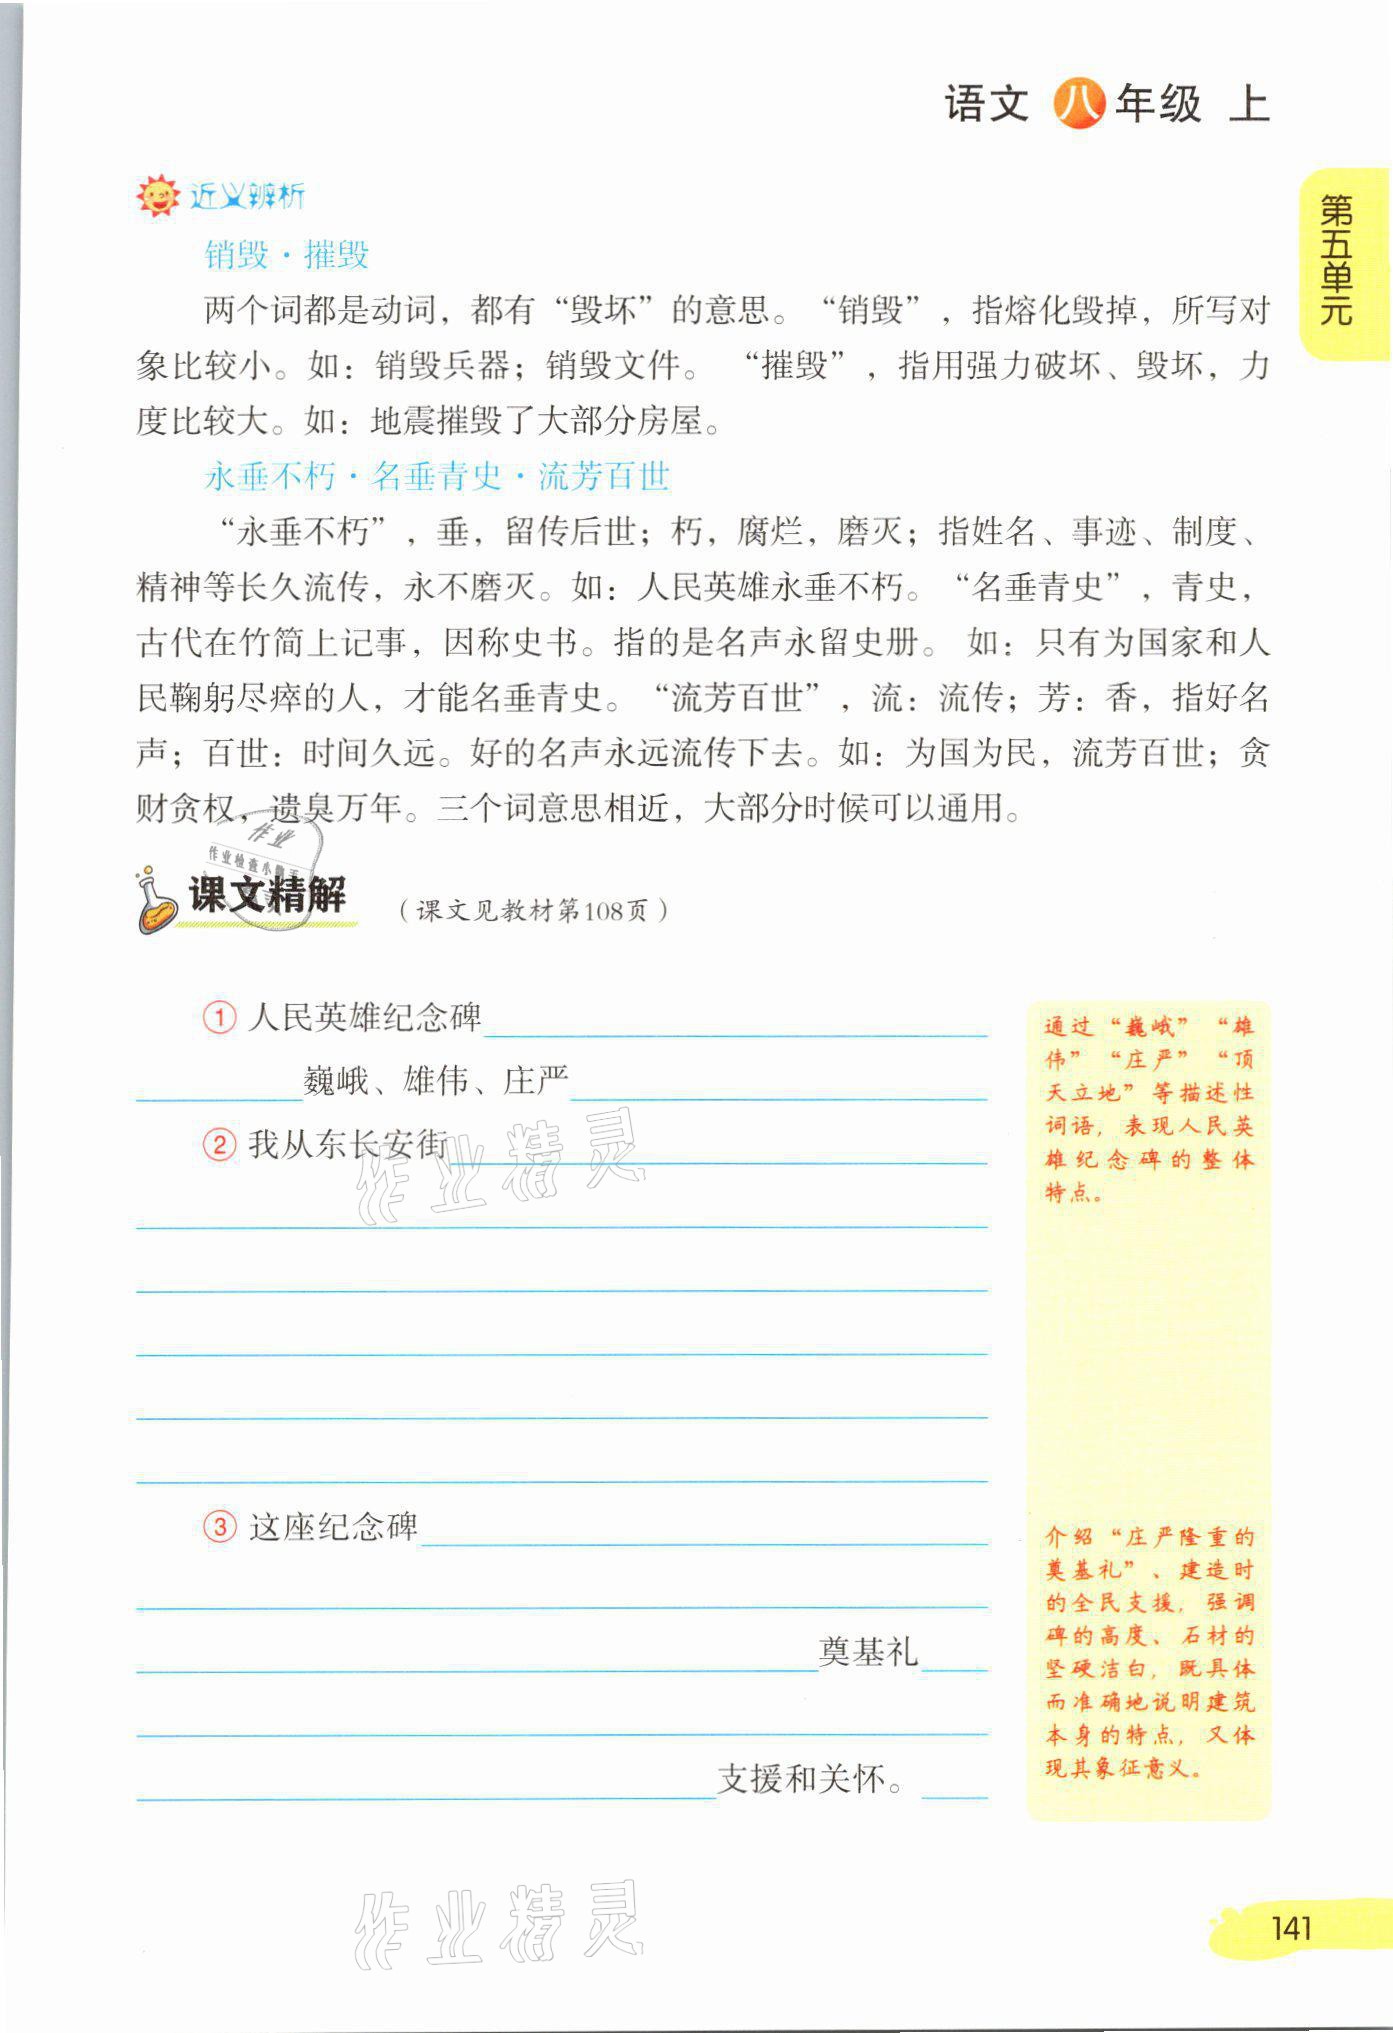 语文 八年级 上
第五单元
近义辨析
销毁·摧毁
两个词都是动词，都有“毁坏”的意思。“销毁”，指熔化毁掉，所写对
象比较小。如：销毁兵器；销毁文件。 “摧毁”，指用强力破坏、毁坏，力
度比较大。如：地震摧毁了大部分房屋。
永垂不朽·名垂青史·流芳百世
“永垂不朽”，垂，留传后世；朽，腐烂，磨灭；指姓名、事迹、制度、
精神等长久流传，永不磨灭。如：人民英雄永垂不朽。“名垂青史”，青史，
古代在竹简上记事，因称史书。指的是名声永留史册。 如：只有为国家和人
民鞠躬尽瘁的人，才能名垂青史。“流芳百世”，流：流传；芳：香，指好名
声；百世：时间久远。好的名声永远流传下去。如：为国为民，流芳百世；贪
财贪权，遗臭万年。三个词意思相近，大部分时候可以通用。
作业
作业检查小
课文精解 （课文见教材第108页）
① 人民英雄纪念碑
巍峨、雄伟、庄严
② 我从东长安街
③ 这座纪念碑
奠基礼
支援和关怀。
通过“巍峨”“雄
伟”“庄严”“顶
天立地”等描述性
词语，表现人民英
雄纪念碑的整体
特点。
介绍“庄严隆重的
奠基礼”、建造时
的全民支援，强调
碑的高度、石材的
坚硬洁白，既具体
而准确地说明建筑
本身的特点，又体
现其象征意义。
作业精灵
作业精灵
141